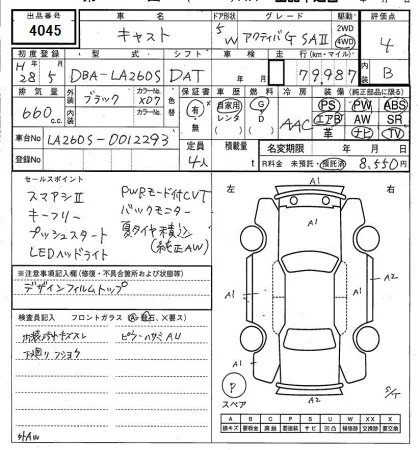 出品番号 車名 ドア形状 グレード 駆動 評価点
4045 キャスト 5 W アクティバG SAⅡ 2WD 4WD 4
初度登録 型式 シフト 車検 走行(km・マイル) 内装
H 28年 5月 DBA-LA260S DAT 年 月 79,987 B
排気量 外装 ブラック カラーNo. X07 色替 保証書 車歴 燃料 冷房 装備(純正部品に限る)
660 c.c. 内装 カラーNo. 有・無 自家用 レンタ G D AAC PS PW ABS
エアB AW SR
革 ナビ TV
車台No LA260S-0012293 定員 4人 積載量 t 名変期限 年 月 日
登録No R料金 未預託・預託済 8,550円
セールスポイント
スマアシⅡ PWRモード付CVT
キーフリー バックモニター
プッシュスタート 夏タイヤ積込
LEDヘッドライト (純正AW)
※注意事項記入欄(修復・不具合箇所および状態等)
デザインフィルムトップ
検査員記入 フロントガラス (A・飛石、X要ス)
内装 キズスレ
下廻リ フショク
左 右
A1
A1
A2
A1
A1
A2
S/T
P
スペア
A B C P S U W X XX
線キズ 要板金 腐蝕 要塗装 サビ 凹凸 補修跡 要交換 交換済